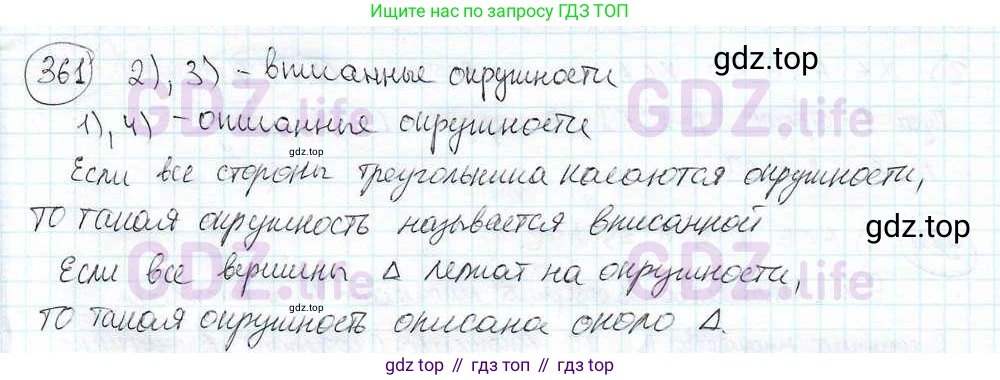 Ищите нас по запросу ГДЗ ТОП
gdz.top
361) 2), 3) - вписанные окружности
GDZ.life GDZ.life
1), 4) - описанные окружности
gdz.top
Если все стороны треугольника касаются окружности,
то такая окружность называется вписанной
gdz.top
GDZ.life GDZ.life
Если все вершины Δ лежат на окружности,
gdz.top
то такая окружность описана около Δ.
gdz top // гдз топ // gdz.top